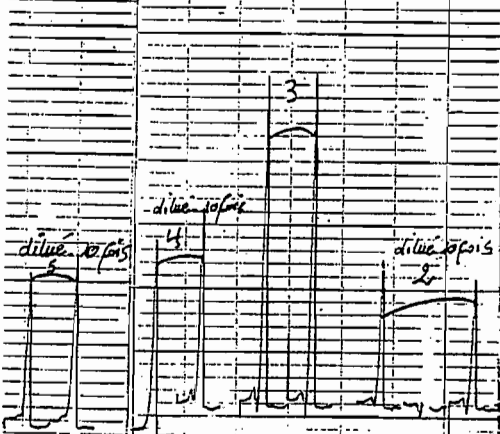 3
dilué 10 fois
4
dilué 10 fois
5
dilué 10 fois
2